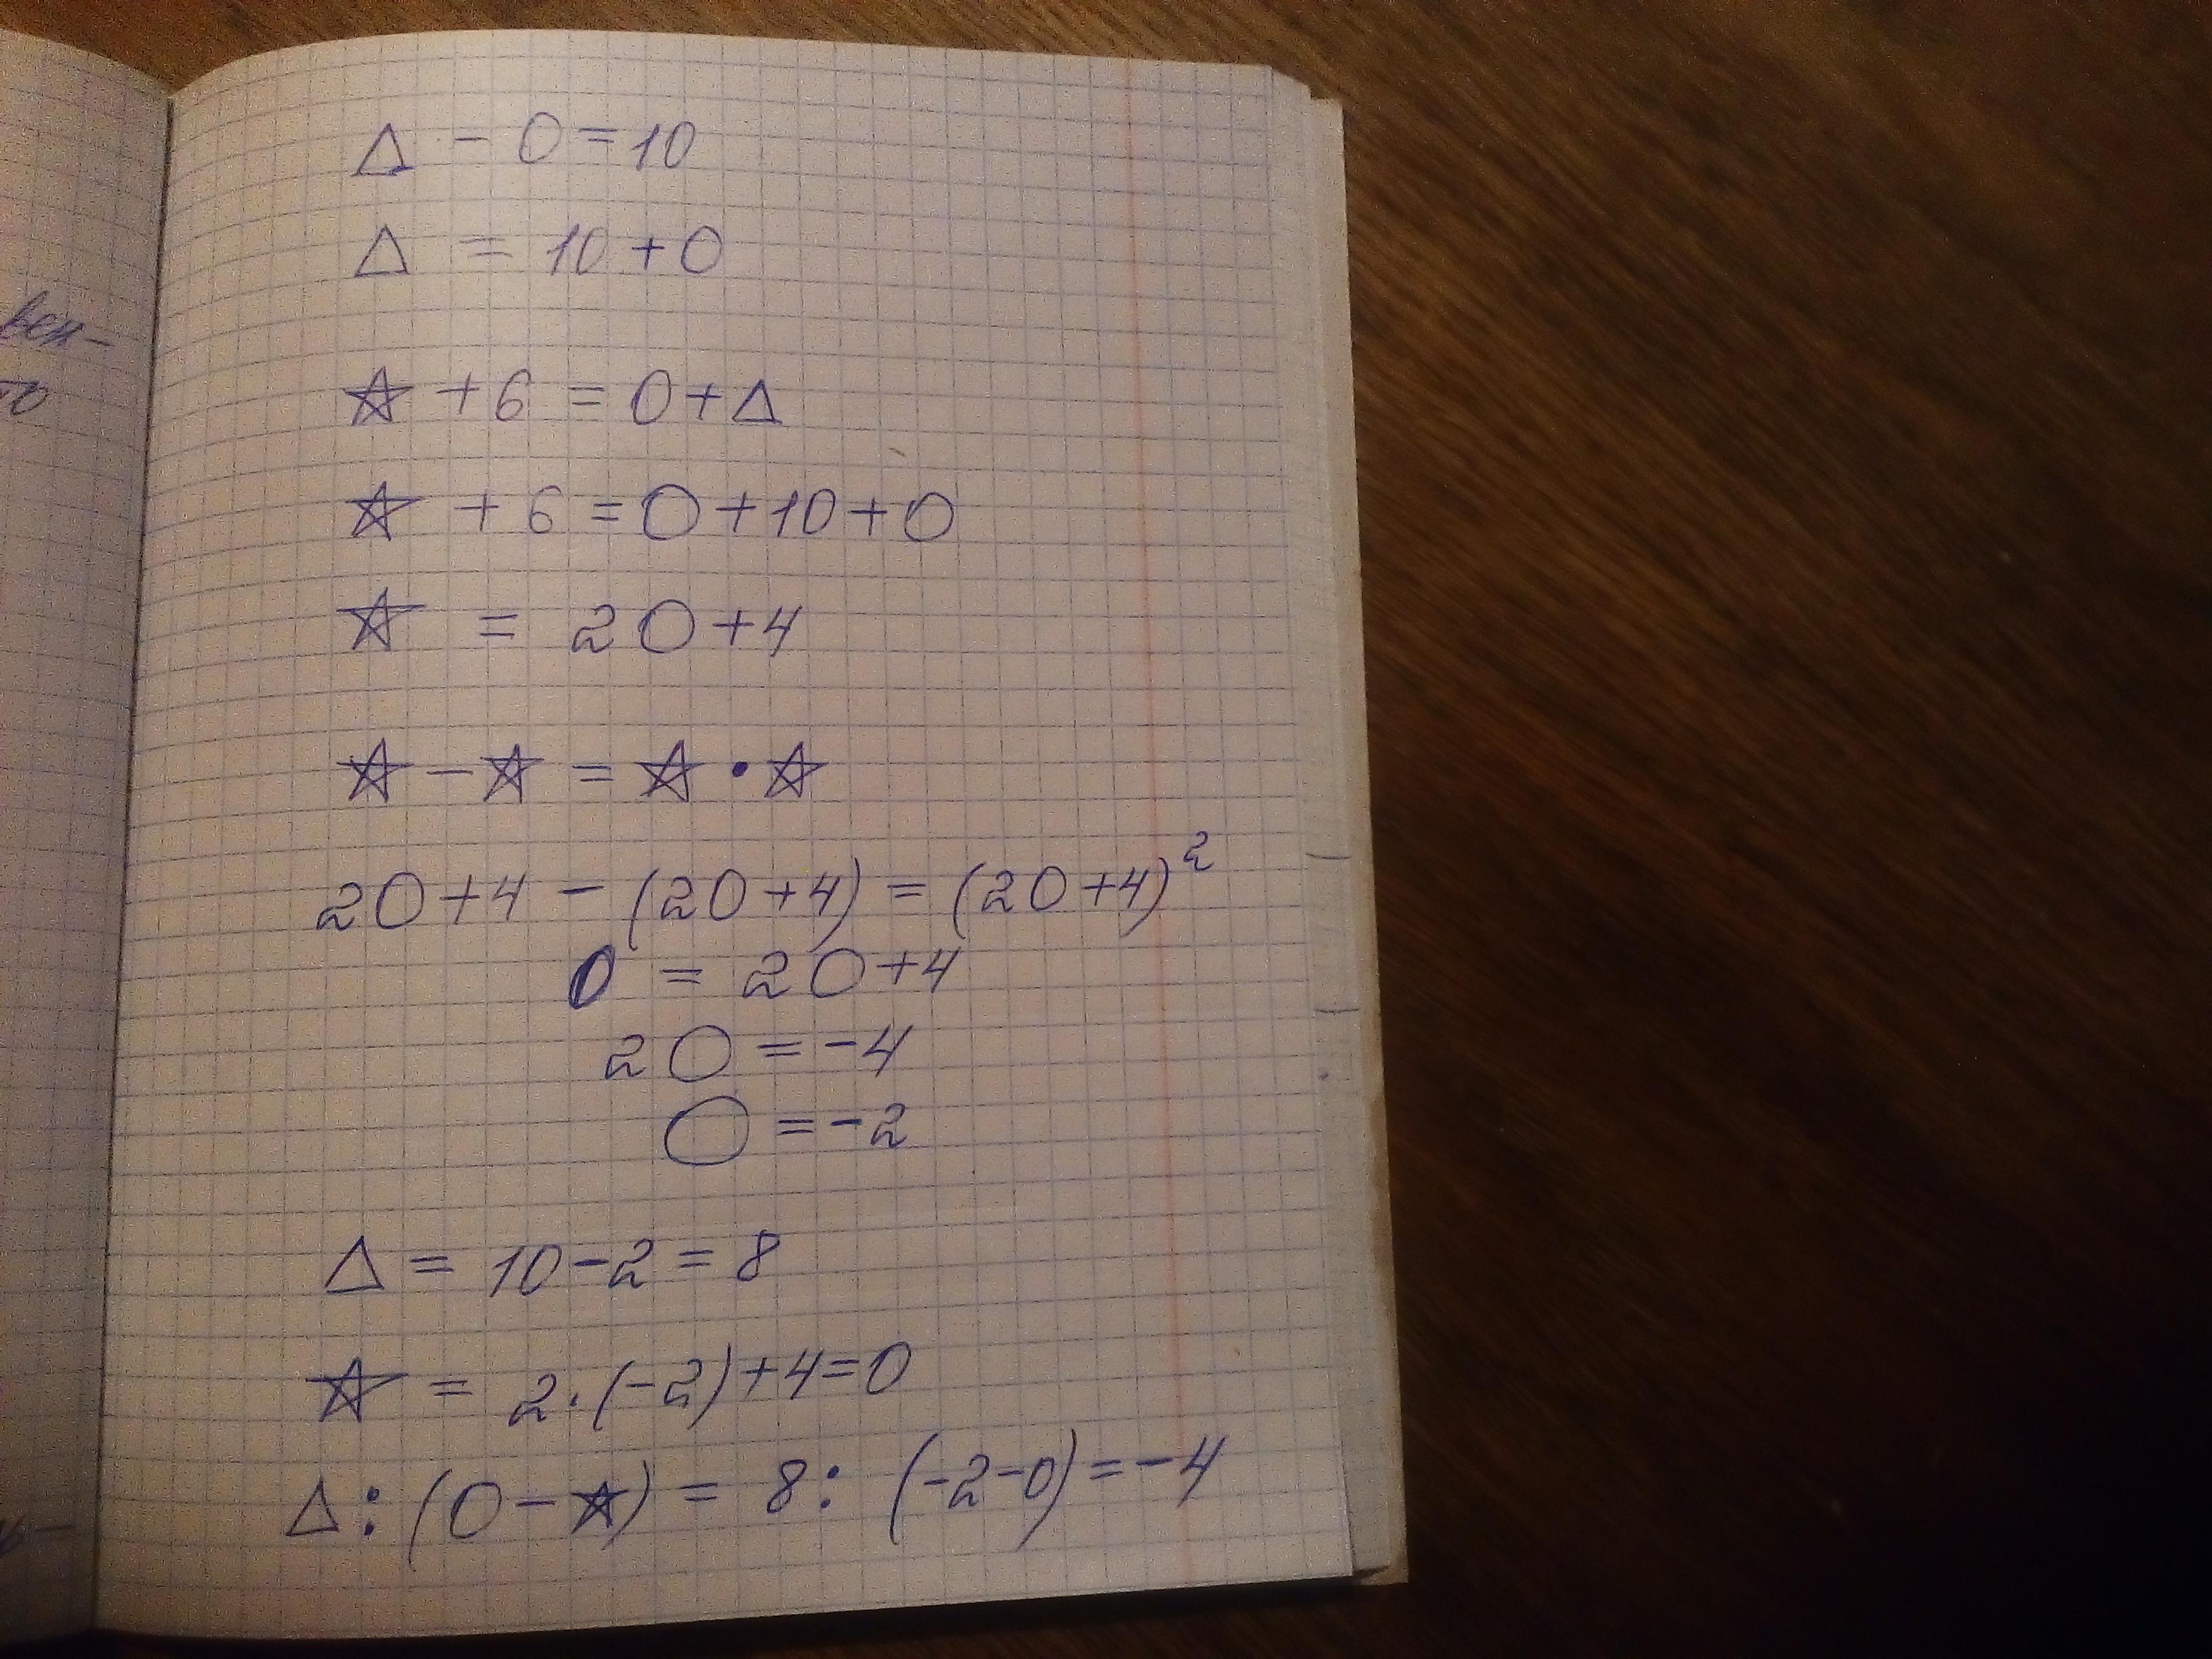 вен-
то
△ - ○ = 10
△ = 10 + ○
☆ + 6 = ○ + △
☆ + 6 = ○ + 10 + ○
☆ = 2○ + 4
☆ - ☆ = ☆ • ☆
2○ + 4 - (2○ + 4) = (2○ + 4)²
0 = 2○ + 4
2○ = -4
○ = -2
△ = 10 - 2 = 8
☆ = 2 · (-2) + 4 = 0
△ : (○ - ☆) = 8 : (-2 - 0) = -4